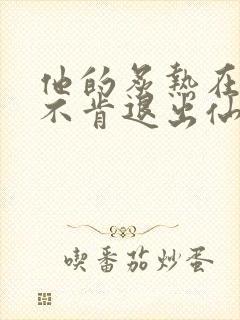 他的炙热在
不肯退出仙
喫番茄炒蛋